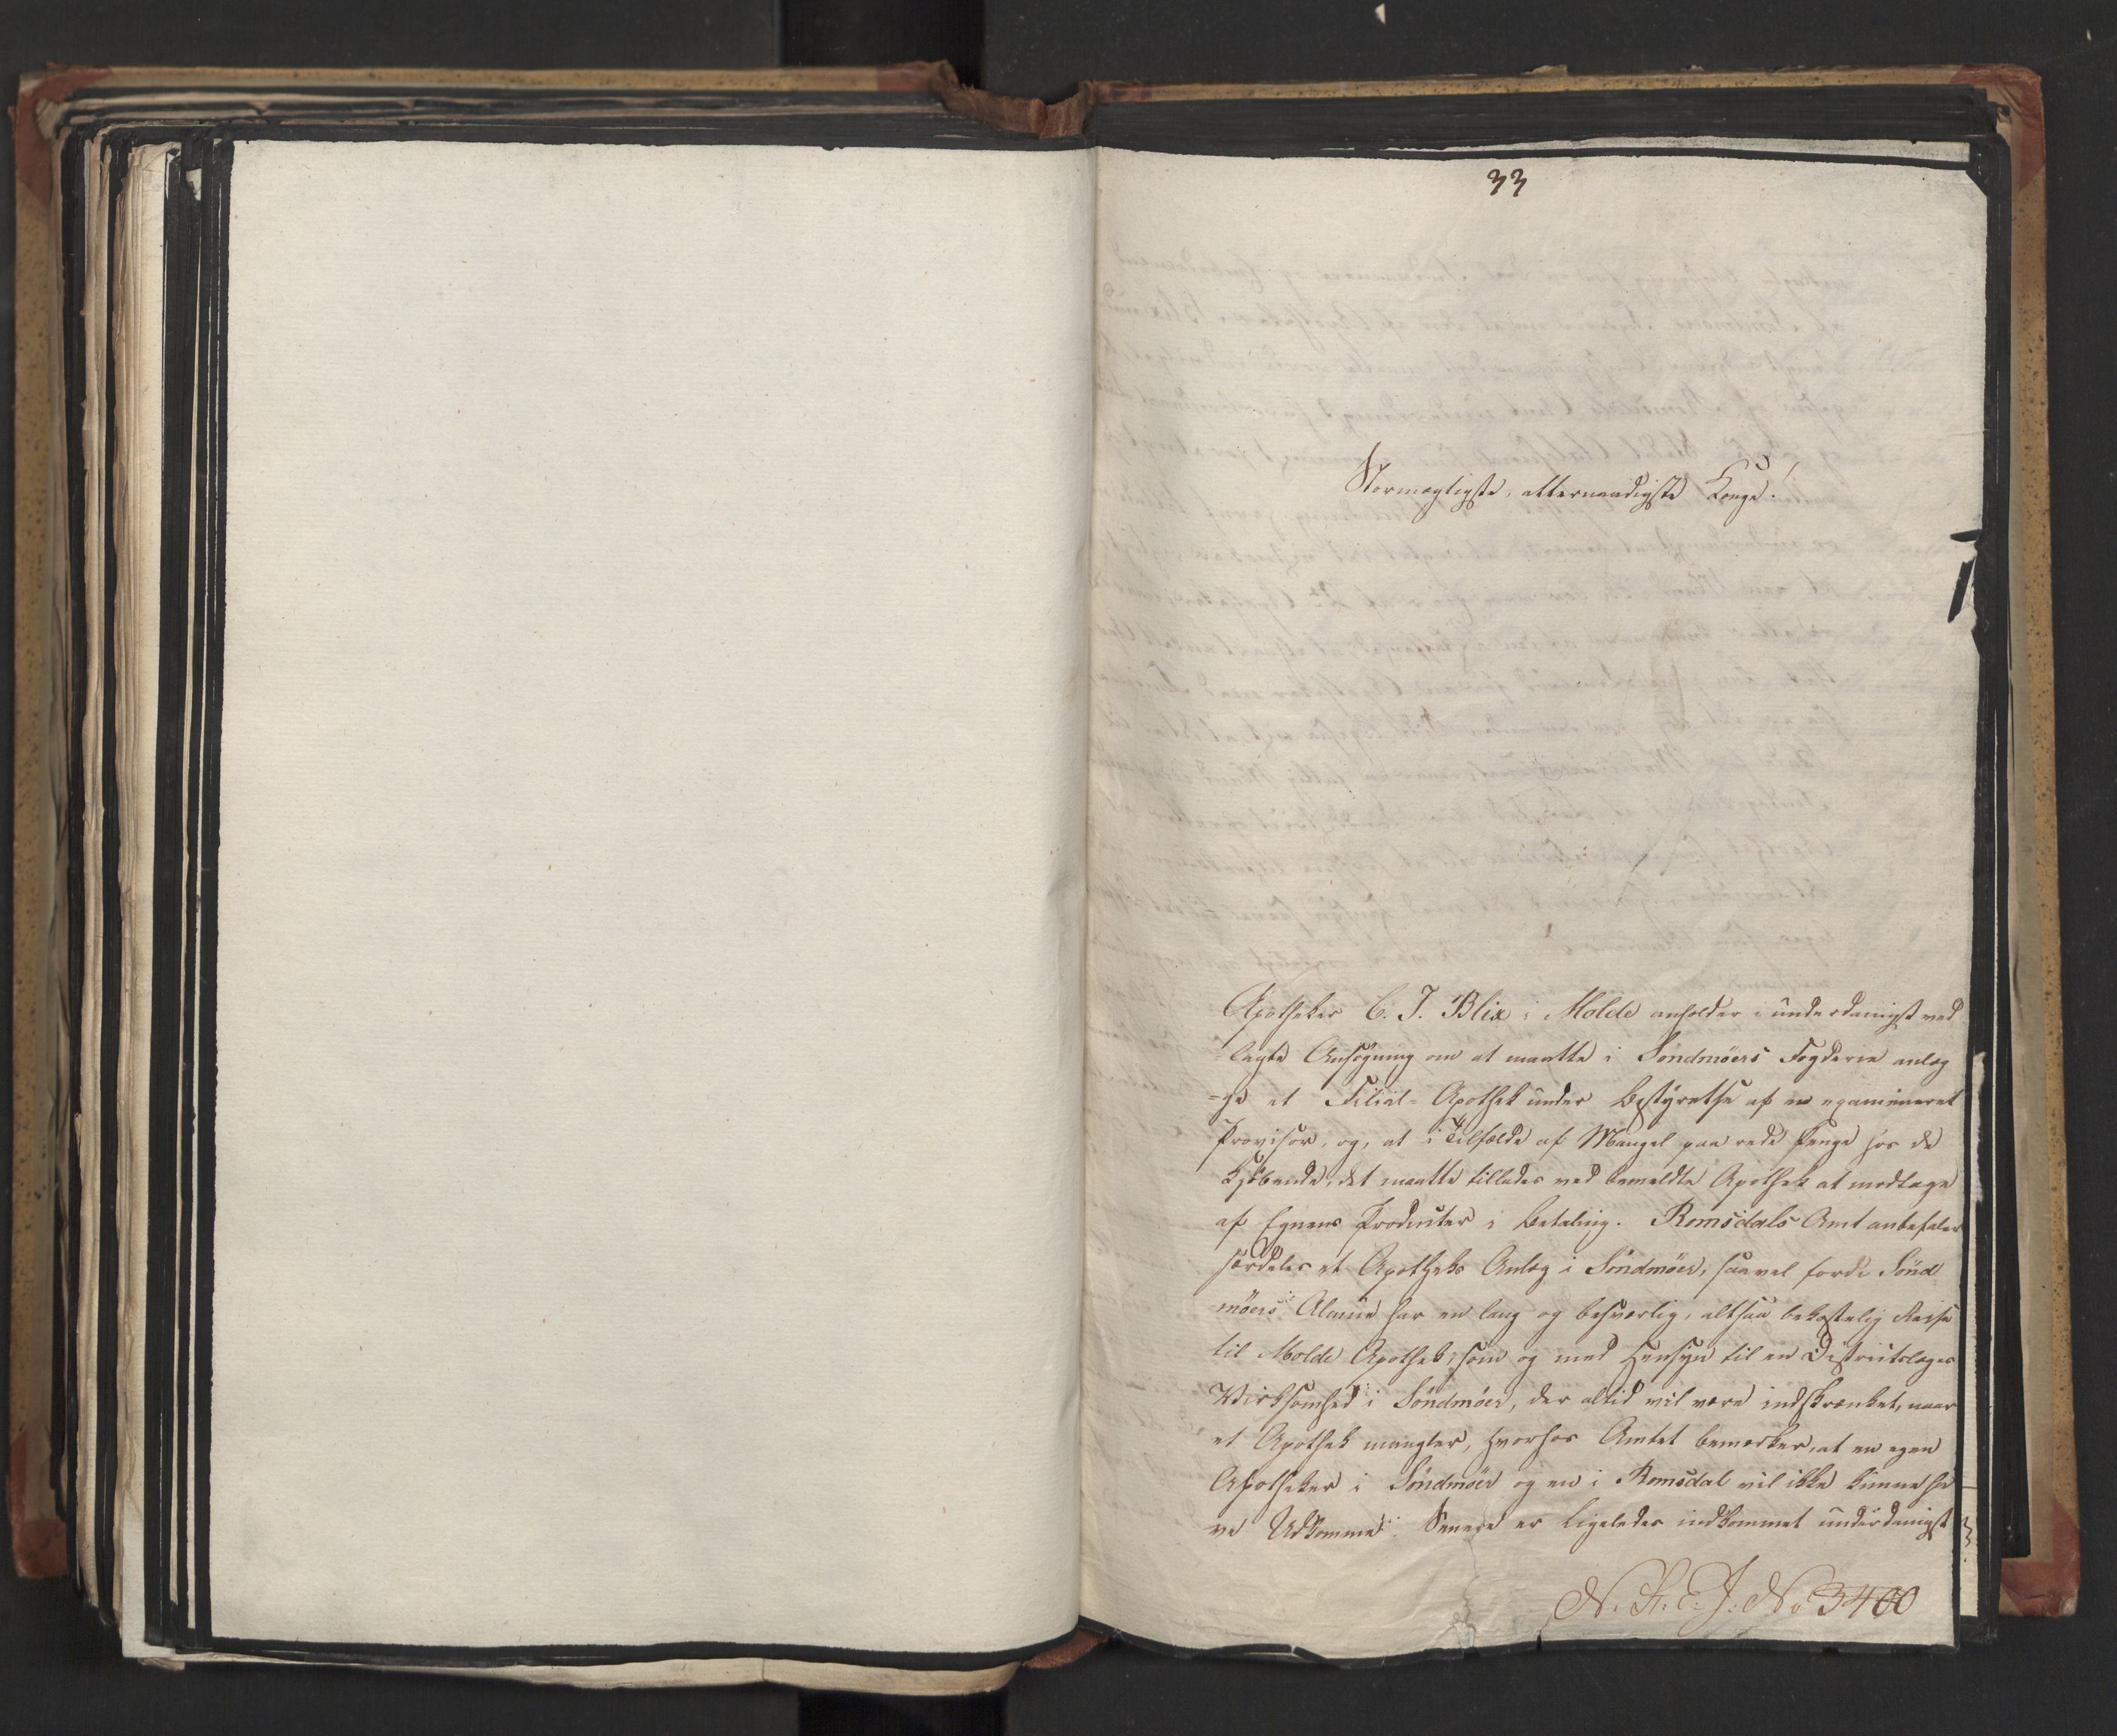 33
Stormægtigste, allernaadigste Konge!
Apotheker C. J. Blix i Molde anholder i underdanigst ved
=lagte Ansögning om at maatte i Söndmöers Fogderie anlæg
=ge et Filial=Apothek under Bestyrelse af en examineret
Provisor, og, at i Tilfælde af Mangel paa rede Penge hos de
Kjöbende, det maatte tillades ved bemeldte Apothek at modtage
af Egnens Producter i Betaling. Romsdals Amt anbefaler
særdeles et Apotheks Anlæg i Söndmöer, saavel fordi Sönd
möers Almue har en lang og besværlig, altsaa bekostelig Reise
til Molde Apothek, som og med Hensyn til en Districtslæges
Virksomhed i Söndmöer, der altid vil være indskrænket, naar
et Apothek mangler, hvorhos Amtet bemærker, at en egen
Apotheker i Söndmöer og en i Romsdal vil ikke kunne ha
ve Udkomme. Senere er ligeledes indkommet underdanigst
N. H. E. J. No 3400